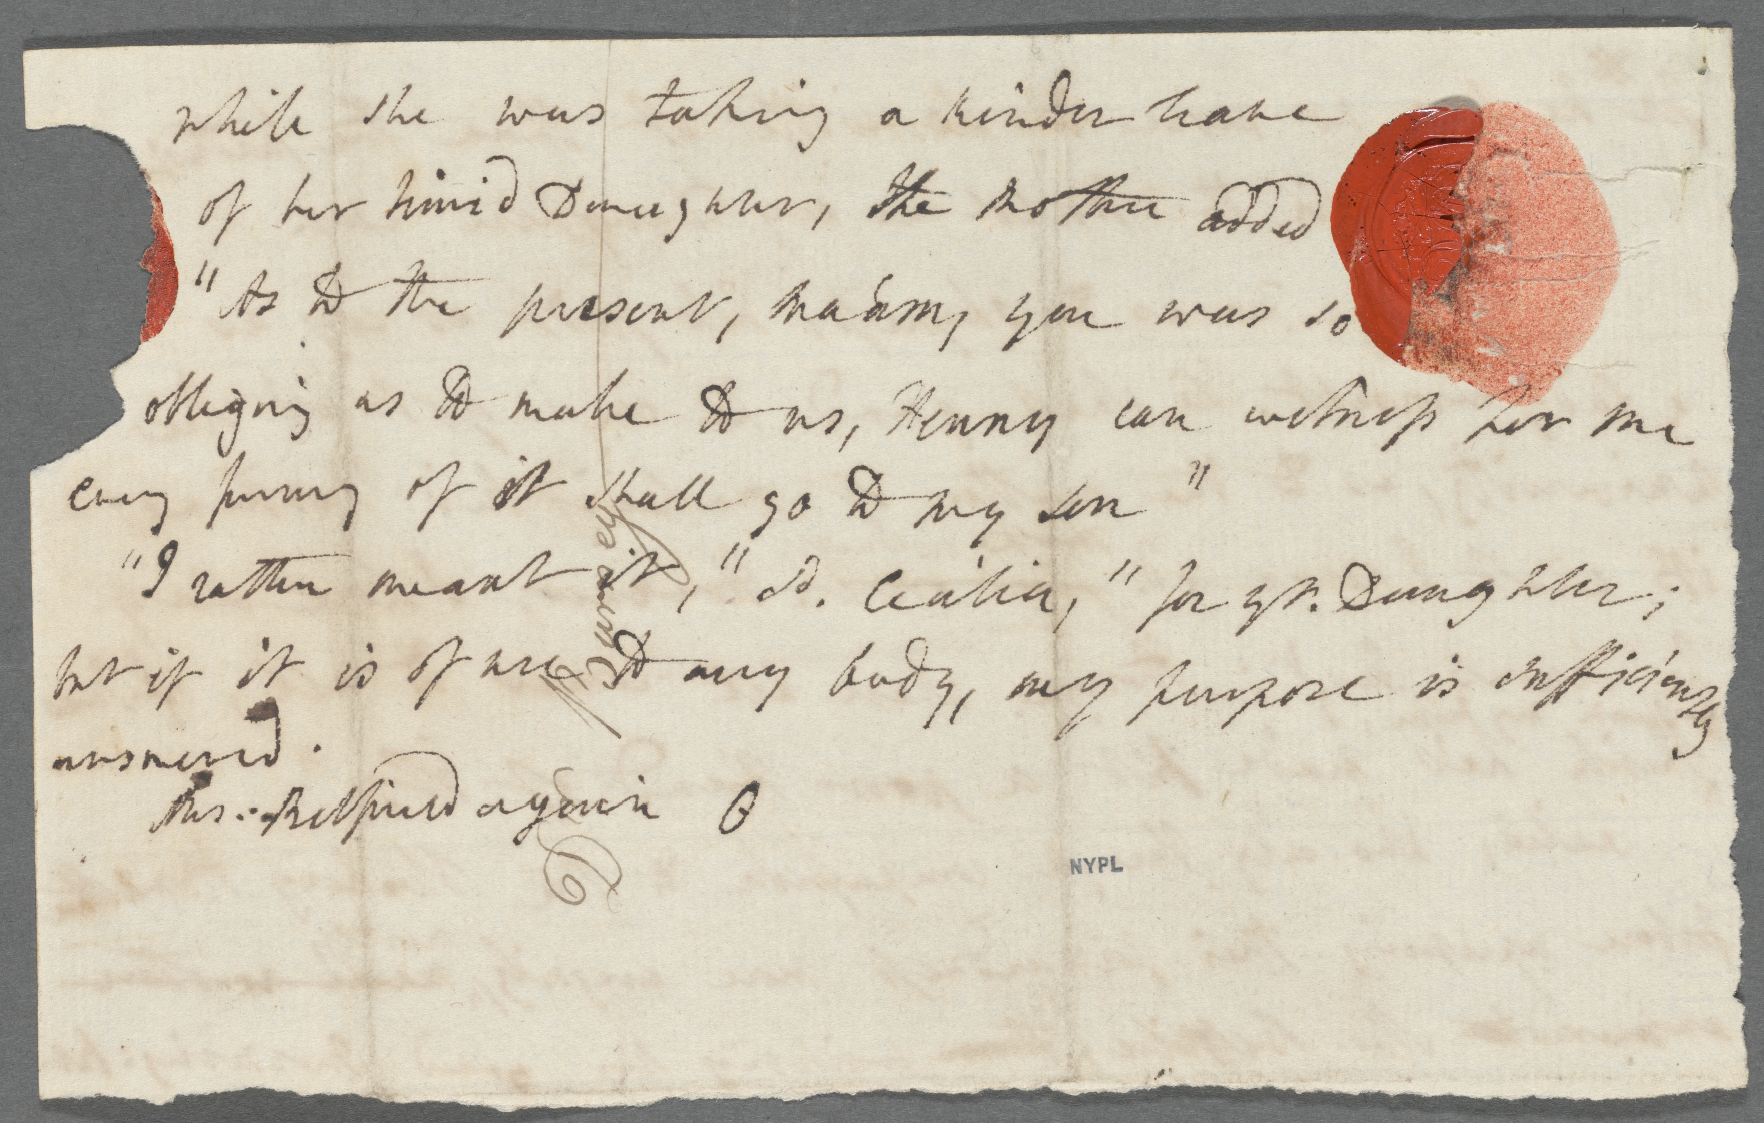 while she was taking a kinder leave
of her timid Daughter, the Mother added
"As to the present, ma'am, you was so
obliging as to make to us, Henny can witness for me
every penny of it shall go to my son"
"I rather meant it," sd. Cecilia, "for yr. Daughter;
but if it is of use to any body, my purpose is sufficiently
answered.
Mrs. Belfield again
NYPL